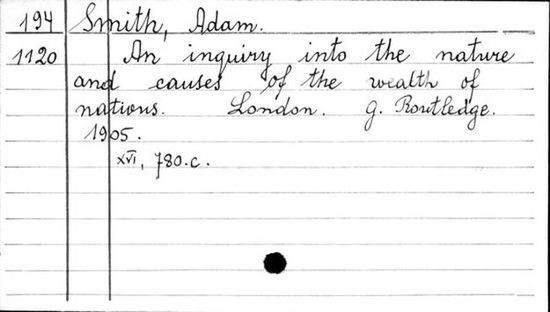 194 Smith, Adam.
1120 An inquiry into the nature
and causes of the wealth of
nations. London. G. Routledge.
1905.
XVI, 780.c.